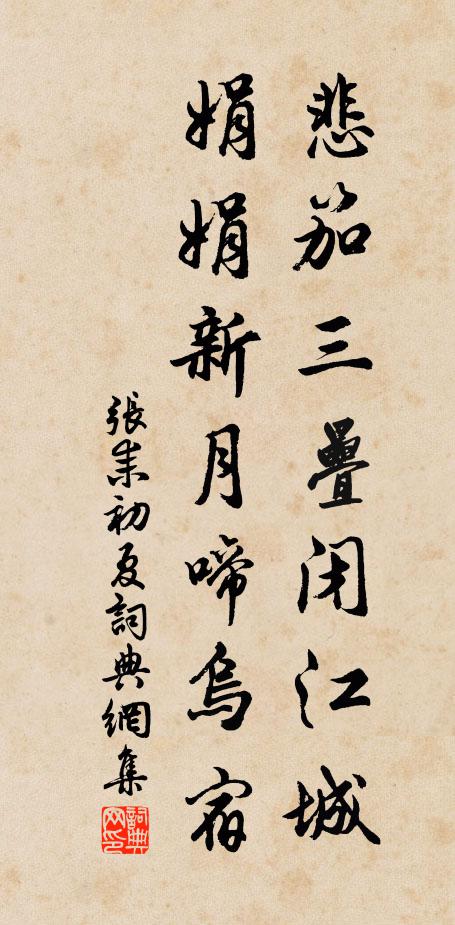 悲笳三疊閉江城
娟娟新月啼烏宿
張耒初夏詞典網集
詞典网印